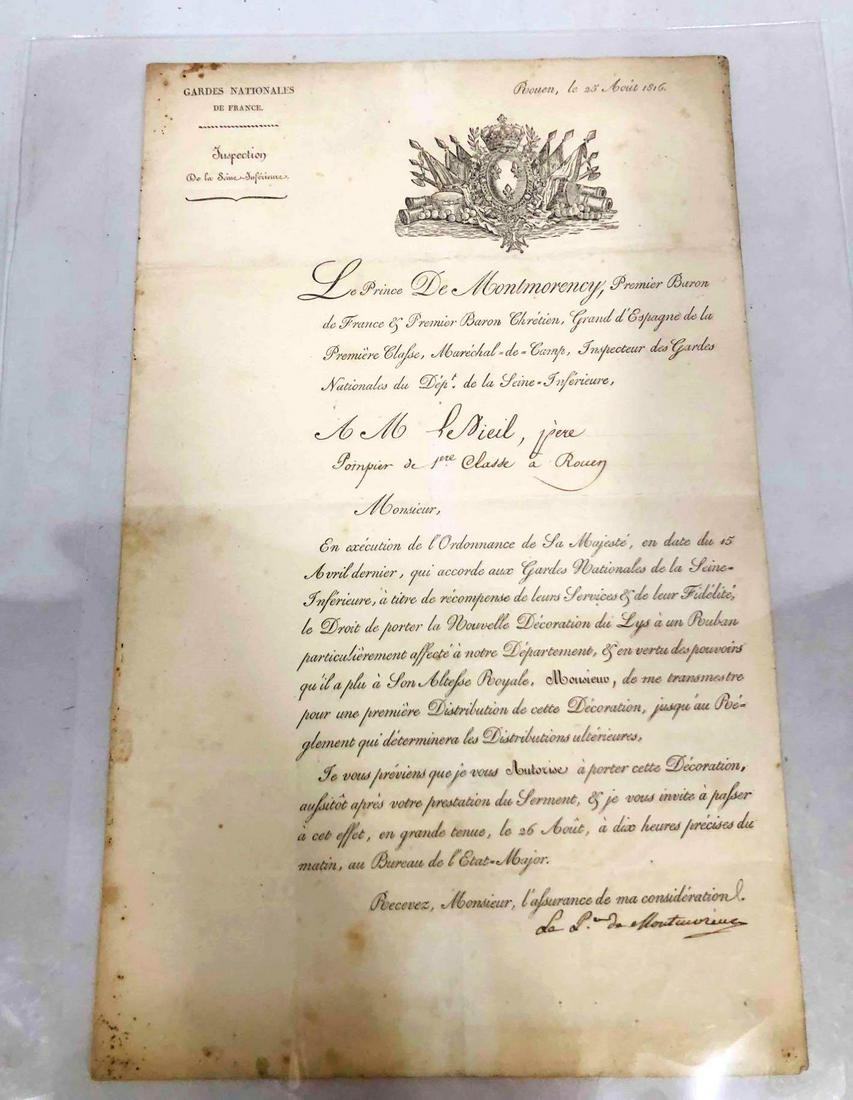 GARDES NATIONALES
DE FRANCE.
Inspection
De la Seine-Inférieure.
Rouen, le 25 Août 1816.
Le Prince De Montmorency, Premier Baron
de France & Premier Baron Chrétien, Grand d'Espagne de la
Première Classe, Maréchal-de-Camp, Inspecteur des Gardes
Nationales du Dépt. de la Seine-Inférieure,
A M le Vieil, père
Pompier de 1ere Classe à Rouen
Monsieur,
En exécution de l'Ordonnance de Sa Majesté, en date du 15
Avril dernier, qui accorde aux Gardes Nationales de la Seine-
Inférieure, à titre de récompense de leurs Services & de leur Fidélité,
le Droit de porter la Nouvelle Décoration du Lys à un Ruban
particulièrement affecté à notre Département, & en vertu des pouvoirs
qu'il a plu à Son Altesse Royale, Monsieur, de me transmestre
pour une première Distribution de cette Décoration, jusqu'au Ré-
glement qui déterminera les Distributions ultérieures,
Je vous préviens que je vous Autorise à porter cette Décoration,
aussitôt après votre prestation du Serment, & je vous invite à passer
à cet effet, en grande tenue, le 26 Août, à dix heures précises du
matin, au Bureau de l'Etat-Major.
Recevez, Monsieur, l'assurance de ma considération.
Le P.ce de Montmorency